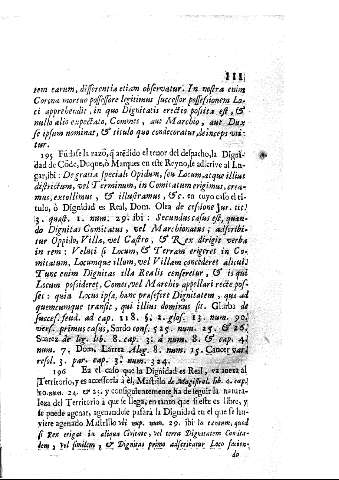 111
tem earum, differentia etiam observatur. In nostra enim
Corona mortuo possessore legitimus successor possessionem Lo-
ci apprehendit, in quo Dignitatis erectio posita est, &
nullo alio expectato, Comes, aut Marchio, aut Dux
se ipsum nominat, & titulo quo condecoratur deinceps uti-
tur.
195 Fúdase la razó, q̃ arédido el tenor del despacho, la Digni-
dad de Códe, Duque, ò Marques en este Reyno, se adscrive al Lu-
gar, ibi: De gratia speciali Opidum, seu Locum, atque illius
districtum, vel Terminum, in Comitatum erigimus, crea-
mus, extollimus, & illustramus, &c. en cuyo caso el ti-
tulo, ò Dignidad es Real, Dom. Olea de cesione jur. tit.
3. quæst. 1. num. 29. ibi: Secundus casus est, quan-
do Dignitas Comitatus, vel Marchionatus; adscribi-
tur Oppido, Villa, vel Castro, & Rex dirigit verba
in rem: Veluti si Locum, & Terram erigeret in Co-
mitatum, Locumque illum, vel Villam concederet alicui
Tunc enim Dignitas illa Realis censeretur, & is qui
Locum possideret, Comes, vel Marchio appellari recte pos-
set: quia Locus ipse, hanc præsefert Dignitatem, quæ ad
quemcumque transit, qui illius dominus sit. Giurba de
succes. feud. ad cap. 118. §. 2. glos. 13. num. 90.
vers. primus casus, Surdo cons. 325. num. 25. & 26.
Suarez de leg. lib. 8. cap. 3. à num. 8. & cap. 4.
num. 7. Dom. Larrea Aleg. 8. num. 15. Cancer var.
resol. 3. par. cap. 3. num. 324.
196 En el caso que la Dignidad es Real, va anexa al
Territorio, y es accesoria à èl, Mastrillo de Magistrat. lib. 4. cap.
10. num. 24. & 25. y consiguientemente ha de seguir la natura-
leza del Territorio à que se llega, en tanto que si este es libre, y
se puede agenar, agenandole pasará la Dignidad en el que le hu-
viere agenado Mastrillo ubi sup. num. 29. ibi
si Rex erigat in aliqua Civitate, vel terra Dignitatem Comita-
dem, vel similem, & Dignitas primo adscribatur Loco facien-
do